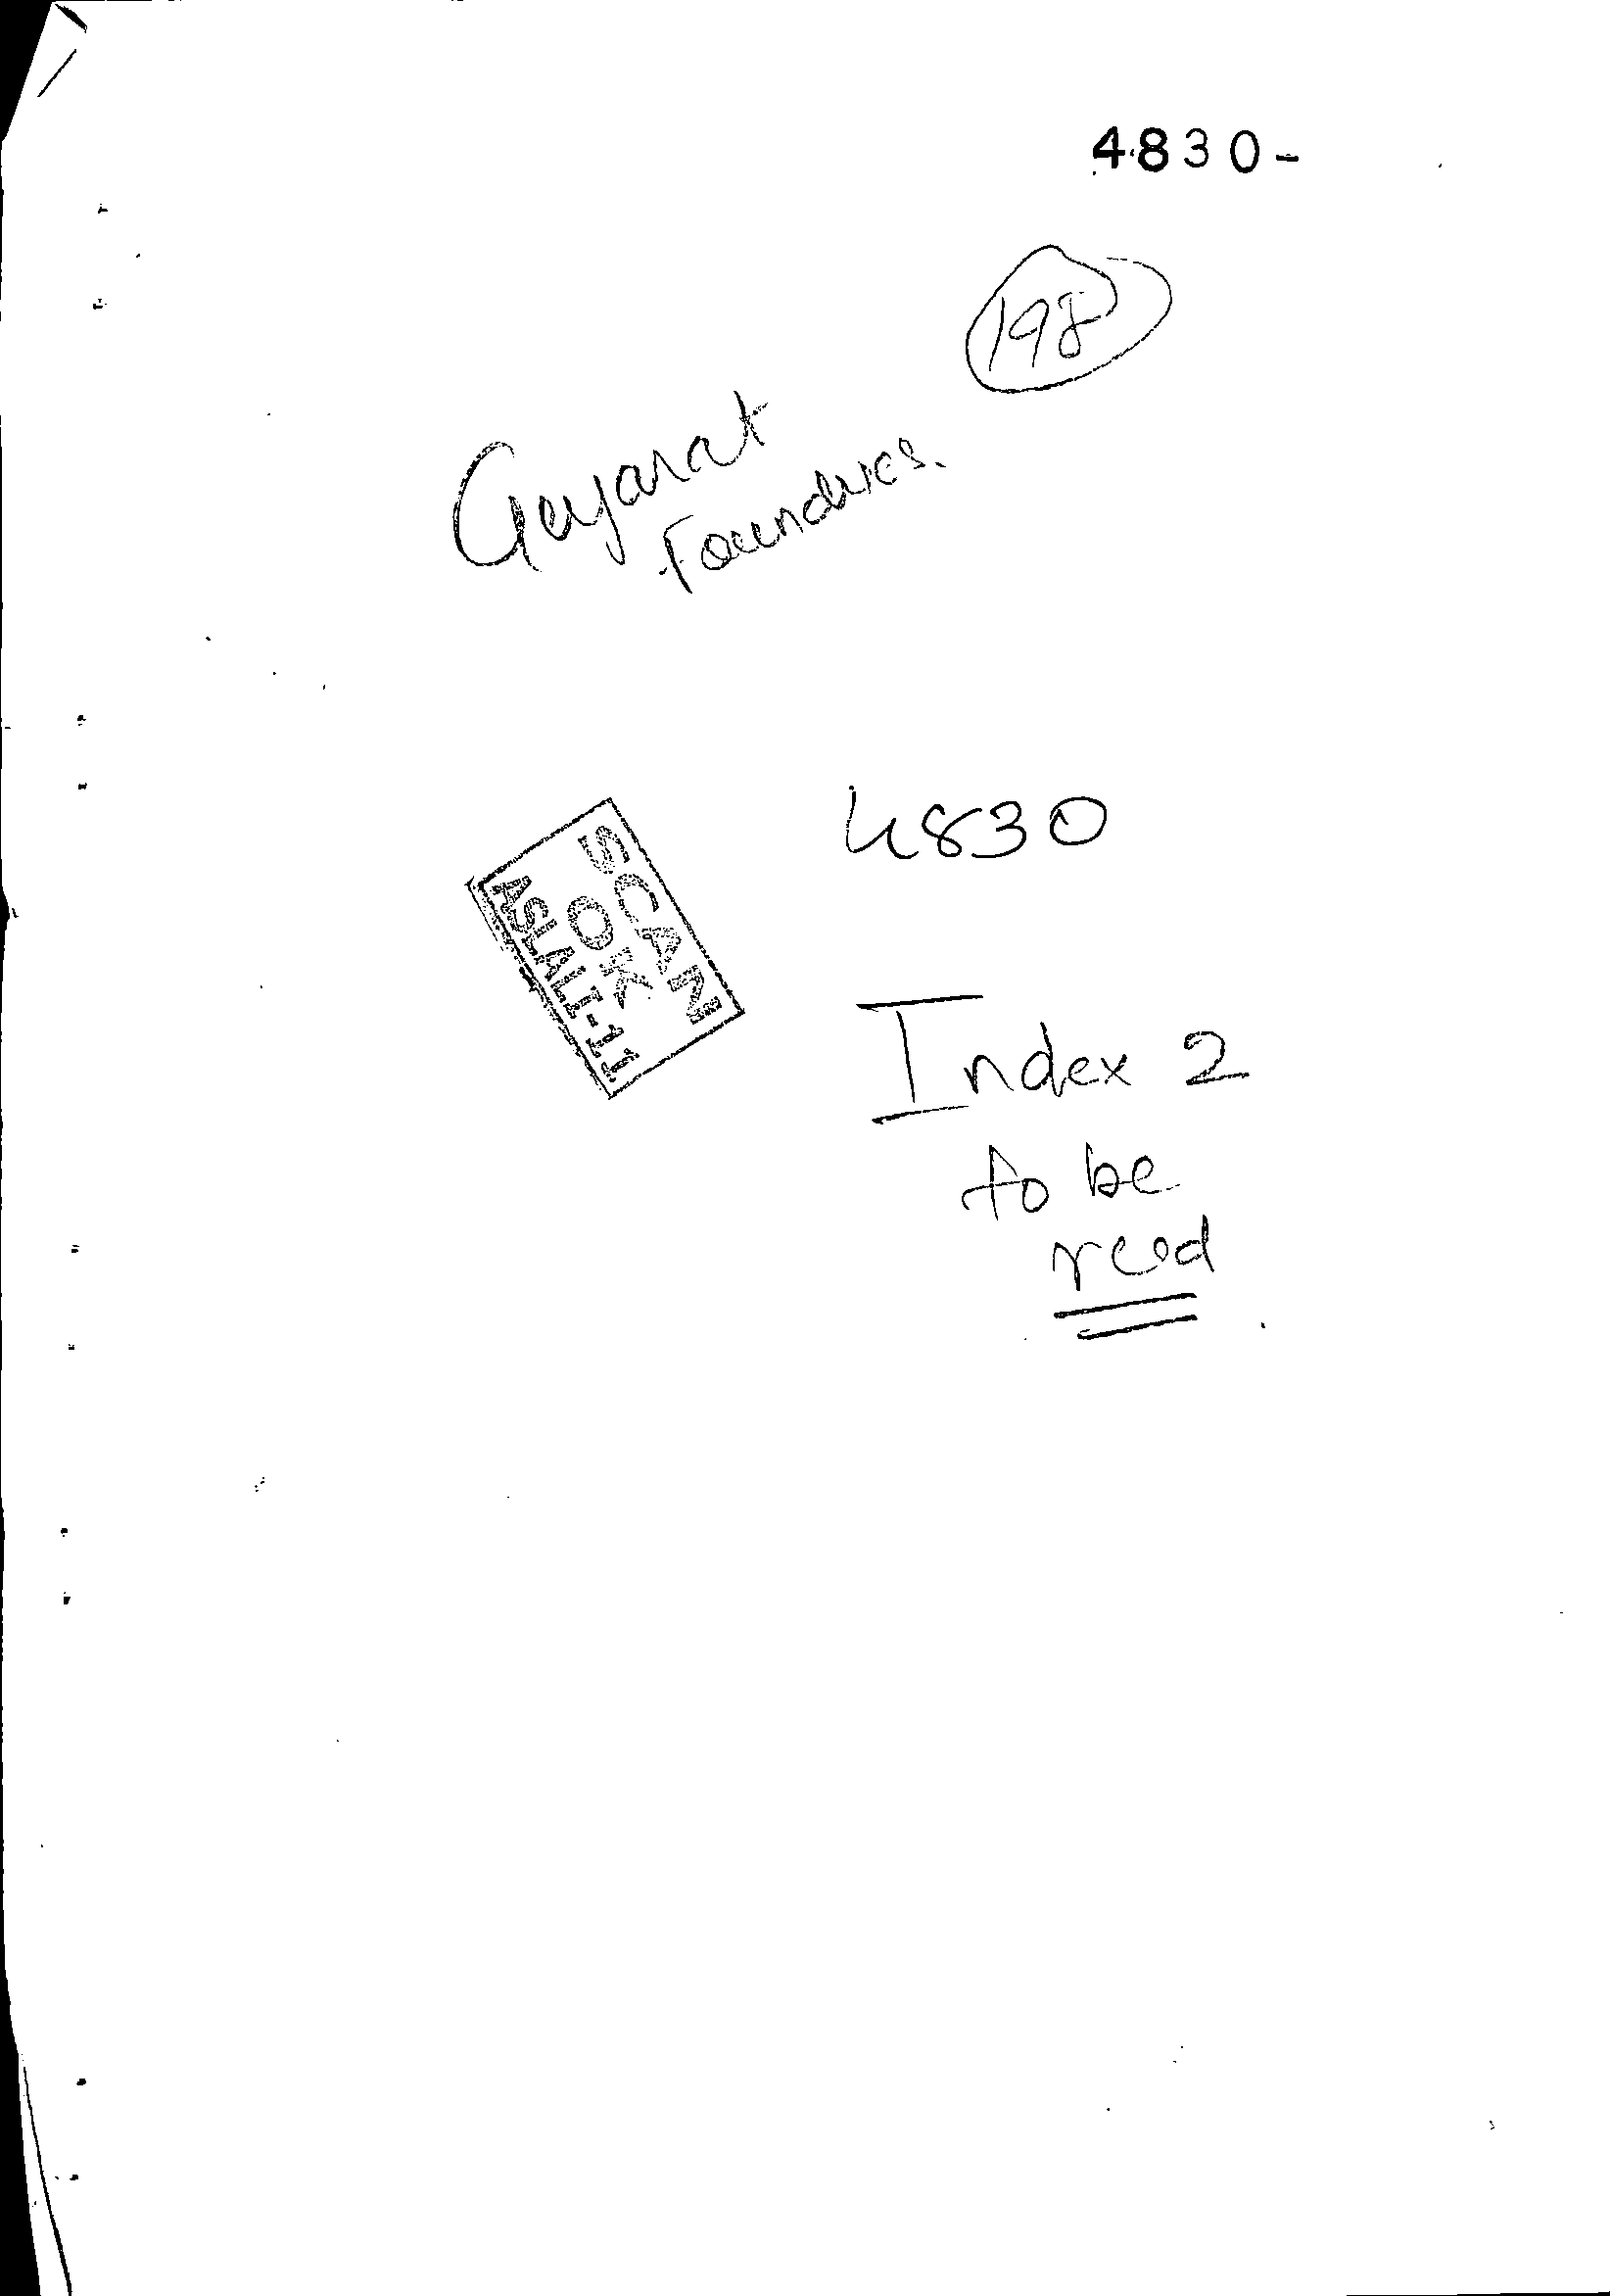 4830-
198
Gujarat
Foundries.
4830
SCAN
OK
ASLALI-11
Index 2
to be
recd